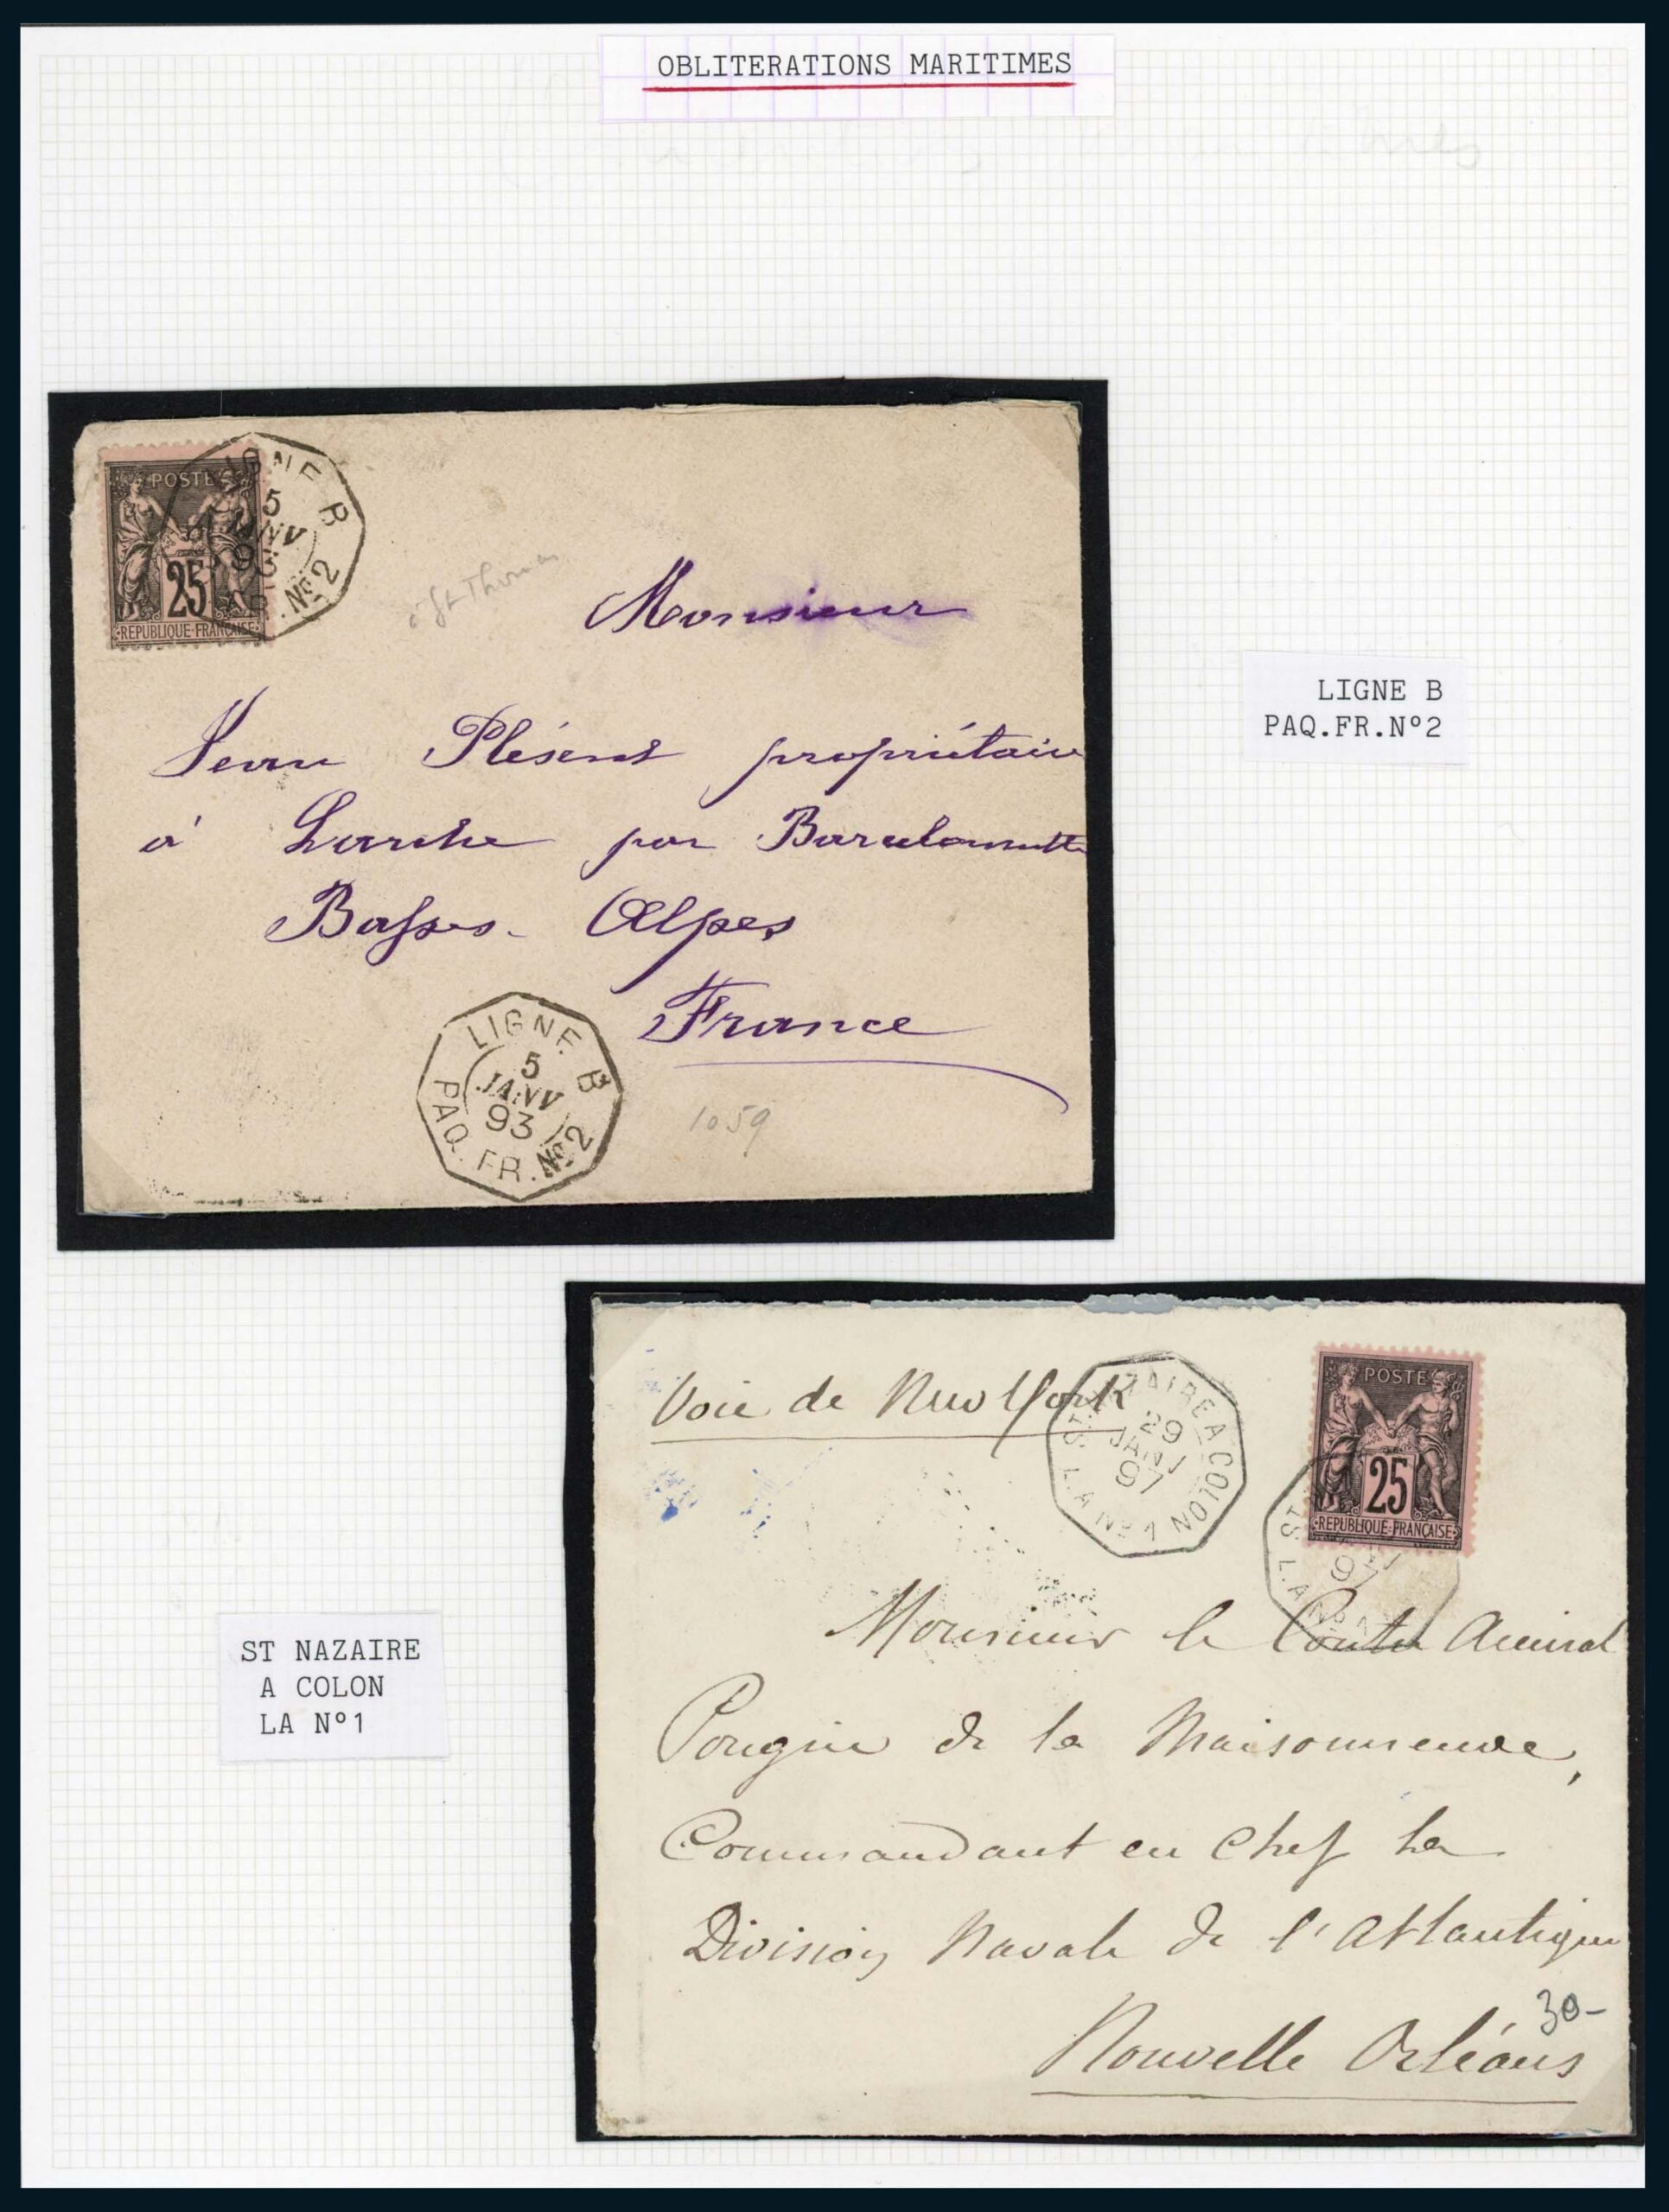 OBLITERATIONS MARITIMES
POSTES
25
REPUBLIQUE FRANÇAISE
LIGNE B
5
JANV
93
PAQ. FR. Nº 2
St Thomas
Monsieur
Jean Plésent propriétaire
à Larche par Barcelonnette
Basses-Alpes
France
LIGNE B
5
JANV
93
PAQ. FR. Nº 2
1059
LIGNE B
PAQ.FR.Nº2
Voie de New York
ST NAZAIRE A COLON
29
JANV
97
L.A Nº 1
POSTES
25
REPUBLIQUE FRANÇAISE
ST
97
L.A Nº 1
Monsieur le Contre Amiral
Pougin de la Maisonneuve,
Commandant en Chef la
Division Navale de l'Atlantique
30-
Nouvelle Orléans
ST NAZAIRE
A COLON
LA Nº1